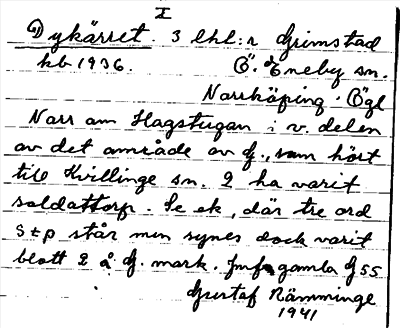 I
1) Dykärret. 3 lhl:r Grimstad
kb 1936. Ö. Eneby sn.
Norrköping. Ögl
Norr om Hagstugan i v. delen
av det område av G., som hört
till Kvillinge sn. 2 ha varit
soldattorp. Se ek, där tre ord
Stp står men synes dock varit
blott 2 å G. mark. Jmf gamla G 55
Gustaf Rämminge
1941